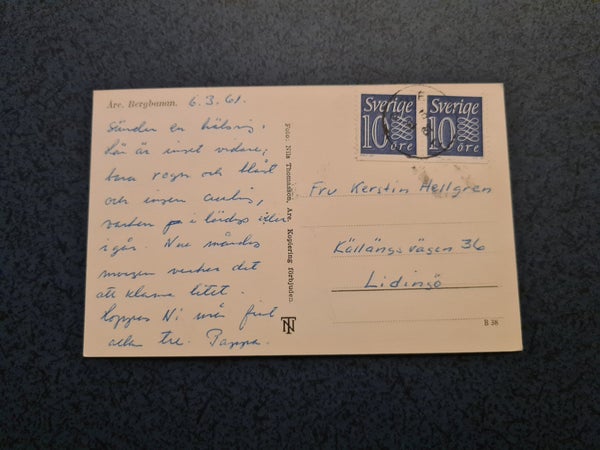 Åre. Bergbanan. 6.3.61.
Sänder en hälsn.
här är inget vidare,
bara regn och blåst
och ingen
varken på i lördags eller
i går. Nu måndas
morgon verkar det
att klarna litet.
Hoppas Ni mår fint
alla tre. Pappa.
Foto: Nils Thomasson, Åre. Kopiering förbjuden.
NT
Sverige
10
öre
Sverige
10
öre
Fru Kerstin Hellgren
Källängsvägen 36
Lidingö
B 38